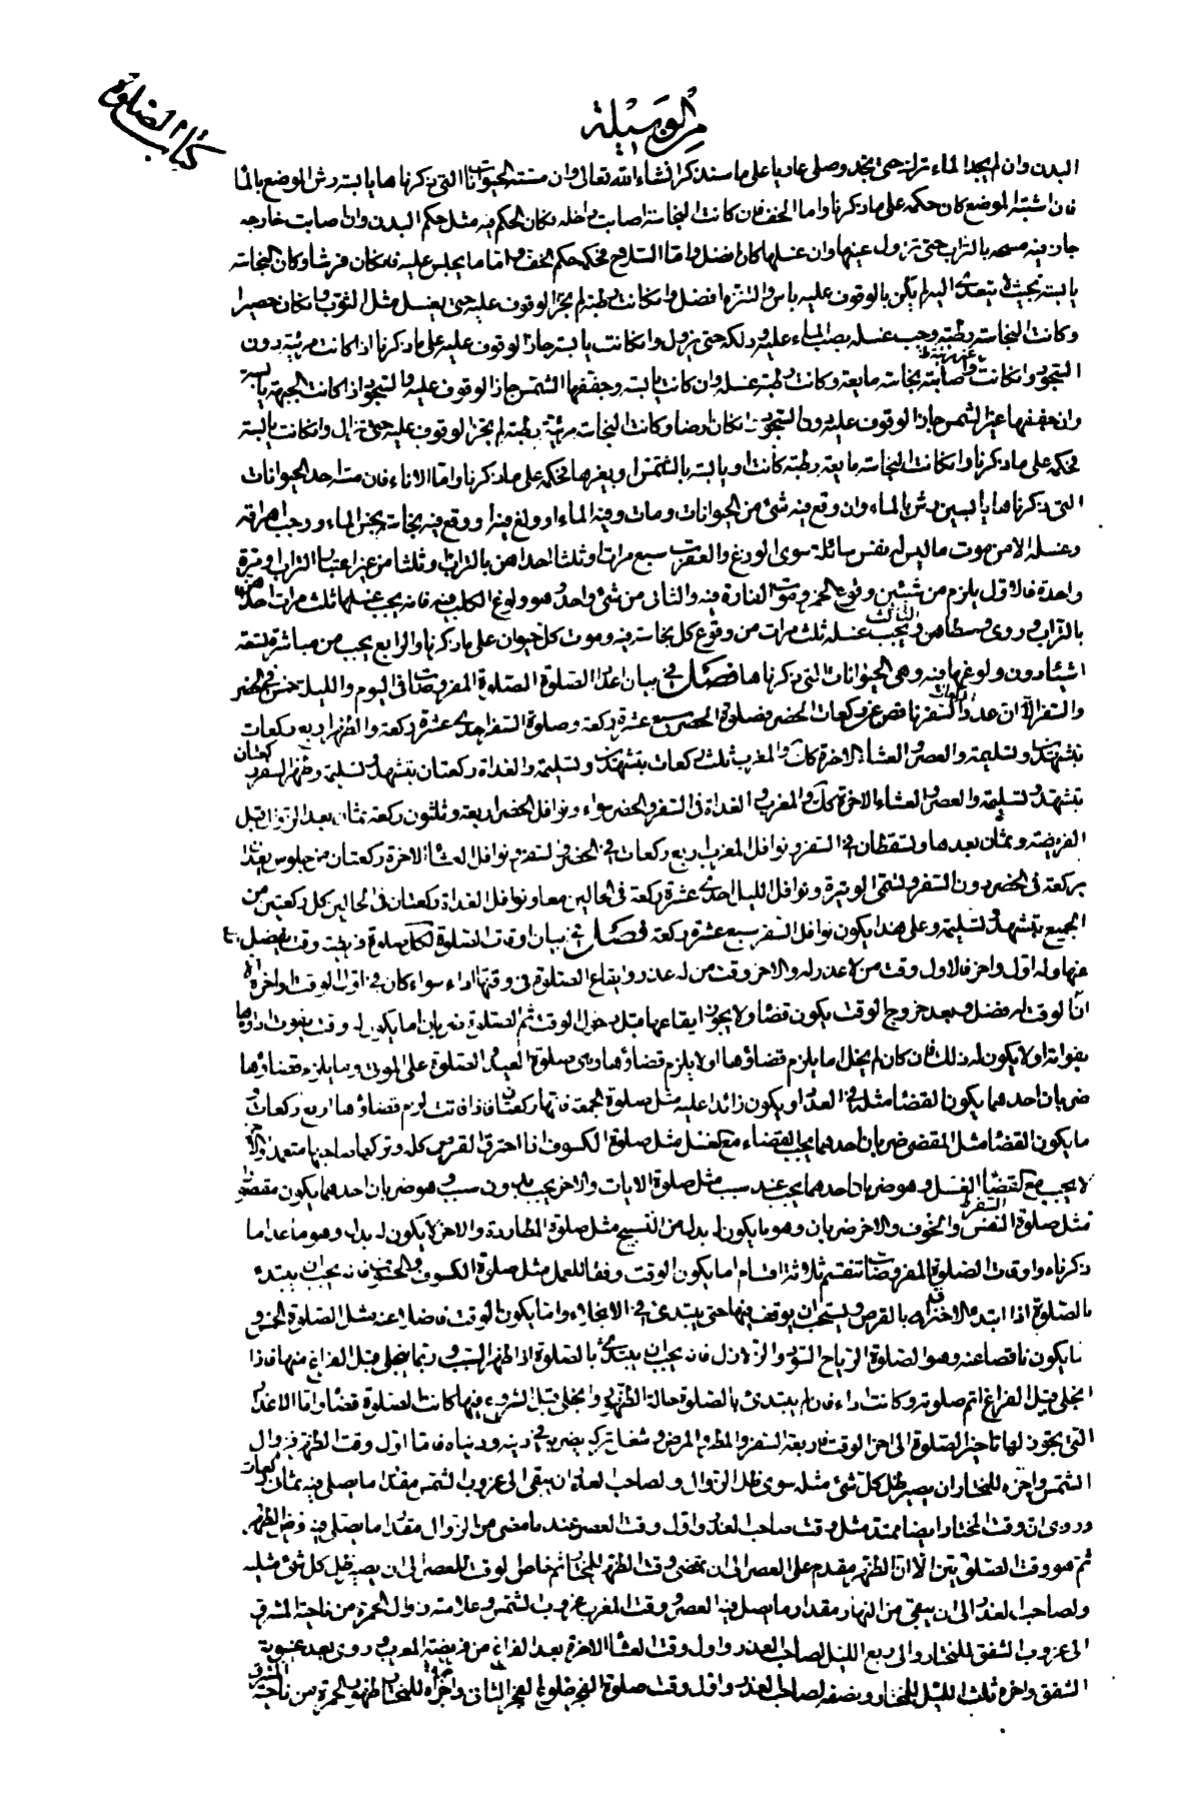 كتاب الصلوة
من الوسيلة
البدن وان لم يجد الماء تركه حتى يجد وصلى عاريا على ما سنذكر انشاء الله تعالى وان مسته الحيوانات التي ذكرناها يابسة رش الموضع بالماء
فان اشتبه الموضع كان حكمه على ما ذكرنا واما الخف فان كانت النجاسة اصابت داخله فكان الحكم فيه مثل حكم البدن وان اصابت خارجه
جاز فيه مسحه بالتراب حتى تزول عينها وان غسلها كان افضل واما السلاح فحكمه حكم الخف واما ما يجلس عليه فان كان فرشا وكان النجاسة
يابسة بحيث لا يتعدى اليه لم يكن بالوقوف عليه باس والتنزه افضل وان كانت رطبة لم يجز الوقوف عليه حتى يغسل مثل الثوب وان كان حصيرا
وكانت النجاسة رطبة وجب غسله بصب الماء عليه ودلكه حتى يزول وان كانت يابسة جاز الوقوف عليه على ما ذكرنا اذا كانت مرئية دون
السجود وان كانت واصابته نجاسة مايعة وكانت رطبة غسله وان كانت يابسة وجففها الشمس جاز الوقوف عليه والسجود اذا كانت الجبهة يابسة
وان جففها غير الشمس جاز الوقوف عليه دون السجود وان كان ارضا وكانت النجاسة مرئية رطبة لم يجز الوقوف عليه حتى تزال وان كانت يابسة
فحكمه على ما ذكرنا وان كانت النجاسة مايعة رطبة كانت او يابسة بالشمس او بغيرها فحكمه على ما ذكرنا واما الاناء فان مسته احد الحيوانات
التي ذكرناها يابسين رش بالماء وان وقع فيه شئ من الحيوانات ومات وفيه الماء او ولغ فيه او وقع فيه نجاسة نجس الماء ووجب اهراقه
وغسله الا من موت ما ليس له نفس سائلة سوى الوزغ والعقرب سبع مرات او ثلثا احداهن بالتراب وثلثا من غير اعتبار التراب ومرة
واحدة فالاول يلزم من شيئين وقوع الخمر وموت الفارة فيه والثاني من شئ واحد وهو ولوغ الكلب فيه فانه يجب غسلها ثلث مرات احداهن
بالتراب وروى وسطاهن والثالث يجب غسله ثلث مرات من وقوع كل نجاسة فيه وموت كل حيوان على ما ذكرنا والرابع يجب من مباشرة تسعة
اشياء دون ولوغها فيه وهي الحيوانات التي ذكرناها فصل في بيان اعداد الصلوة الصلوة المفروضات في اليوم والليل خمس في الحضر
والسفر الا ان عدد ركعات السفر ناقص عن ركعات الحضر فصلوة الحضر سبع عشرة ركعة وصلوة السفر احدى عشرة ركعة والظهر اربع ركعات
بتشهدين وتسليمة والعصر والعشاء الاخرة كذلك والمغرب ثلث ركعات بتشهدين وتسليمة والغداة ركعتان بتشهد وتسليمة وظهر السفر ركعتان
بتشهد وتسليمة والعصر والعشاء الاخرة كذلك والمغرب والغداة في السفر والحضر سواء ونوافل الحضر اربعة وثلثون ركعة ثمان بعد الزوال قبل
الفريضة وثمان بعدها وتسقطان في السفر ونوافل المغرب اربع ركعات في الحضر والسفر ونوافل العشاء الاخرة ركعتان من جلوس يعدان
بركعة في الحضر دون السفر وتسمى الوتيرة ونوافل الليل احدى عشرة ركعة في الحالين معا ونوافل الغداة ركعتان في الحالين كل ركعتين من
الجميع بتشهد وتسليمة وعلى هذا يكون نوافل السفر سبع عشرة ركعة فصل في بيان اوقات الصلوة لكل صلوة فريضة وقت يفضل
عنها وله اول واخر فالاول وقت من لا عذر له والاخر وقت من له عذر وايقاع الصلوة في وقتها اداء سواء كان في اول الوقت او اخره الا
ان اول الوقت له فضل وبعد خروج الوقت يكون قضاء ولا يجوز ايقاعها قبل دخول الوقت ثم الصلوة ضربان اما يكون له وقت يفوت اداؤها
بفواته او لا يكون له ذلك فان كان لم يخل اما يلزم قضاؤها او لا يلزم قضاؤها وهي صلوة العيد والصلوة على الموتى وما يلزم قضاؤها
ضربان احدهما يكون القضاء مثله في العدد او يكون زائدا عليه مثل صلوة الجمعة فانها ركعتان فاذا فاتت لزم قضاؤها اربع ركعات و
ما يكون القضاء مثل المقضي ضربان احدهما يجب القضاء مع الغسل مثل صلوة الكسوف اذا احترق القرص كله وتركها صاحبها متعمدا والاخر
لا يجب مع القضاء الغسل وهو ضربان احدهما يجب عند سبب مثل صلوة الايات والاخر يجب بدون سبب وهو ضربان احدهما يكون مقصورا
مثل صلوة السفر والخوف والاخر ضربان وهو ما يكون له بدل من التسبيح مثل صلوة المطاردة والاخر لا يكون له بدل وهو ما عدا ما
ذكرناه واوقات الصلوة المفروضات تنقسم ثلاثة اقسام اما يكون الوقت وفقا للعمل مثل صلوة الكسوف والخسوف فانه يجب ان يبتدئ
بالصلوة اذا ابتدأ الاحتراق بالقرص ويستحب ان يوقف فيها حتى يبتدئ في الانجلاء واما يكون الوقت فاضلا عنه مثل الصلوة الخمس و
ما يكون ناقصا عنه وهو الصلوة الرياح السود والزلازل فانه يجب ان يبتدئ بالصلوة اذا ظهر السبب وربما ينجلي قبل الفراغ منها فاذا
انجلى قبل الفراغ اتم صلوته وكانت اداء فان لم يبتدئ بالصلوة حالة الظهور وانجلى قبل الشروع فيها كانت الصلوة قضاء واما الاعذار
التي يجوز لها تاخير الصلوة الى اخر الوقت فاربعة السفر والمطر والمرض وشغل يتركه يضر به في دينه ودنياه فاما اول وقت الظهر فزوال
الشمس واخره للمختار ان يصير ظل كل شئ مثله سوى ظل الزوال ولصاحب العذر ان يبقى الى غروب الشمس مقدار ما يصلي فيه ثمان ركعات
وروى ان وقت المختار ايضا ممتد مثل وقت صاحب العذر واول وقت العصر عند ما مضى من الزوال مقدار ما يصلي فيه فرض الظهر
ثم هو وقت الصلوتين الا ان الظهر مقدم على العصر الى ان يمضي وقت الظهر للمختار ثم خلص الوقت للعصر الى ان يصير ظل كل شئ مثليه
ولصاحب العذر الى ان يبقى من النهار مقدار ما يصلي فيه العصر ووقت المغرب غروب الشمس وعلامته زوال الحمرة من ناحية المشرق
الى غروب الشفق للمختار والى ربع الليل لصاحب العذر واول وقت العشاء الاخرة بعد الفراغ من فريضة المغرب وروى بعد غيبوبة
الشفق واخره ثلث الليل للمختار ونصفه لصاحب العذر واول وقت صلوة الفجر طلوع الفجر الثاني واخره للمختار ظهور الحمرة من ناحية المشرق